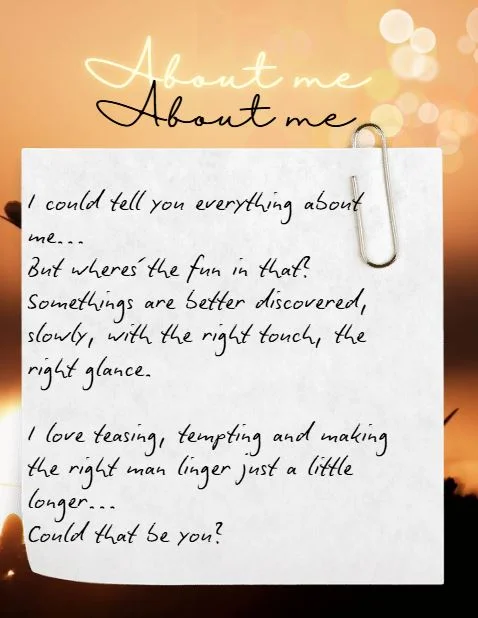 About me
About me
I could tell you everything about
me...
But wheres´the fun in that?
Somethings are better discovered,
slowly, with the right touch, the
right glance.
I love teasing, tempting and making
the right man linger just a little
longer...
Could that be you?